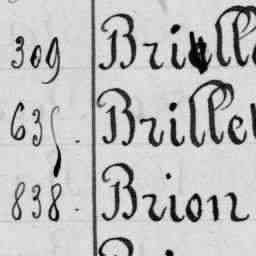 309 Brill
635. Brille
838. Brion